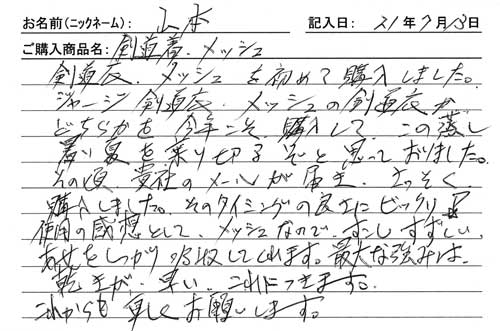 お名前(ニックネーム): 山本 記入日: 21年7月13日
ご購入商品名: 剣道着・メッシュ
剣道衣・メッシュを初めて購入しました。
ジャージ剣道衣・メッシュの剣道衣か
どちらかを今年こそ購入して、この蒸し
暑い夏を乗り切るぞと思っておりました。
その頃貴社のメールが届き、さっそく
購入しました。そのタイミングの良さにビックリ
使用の感想として、メッシュなので、すこしすずしい、
あせをしっかり吸収してくれます。最大な強みは、
乾きが、早い、これにつきます。
これからも宜しくお願いします。